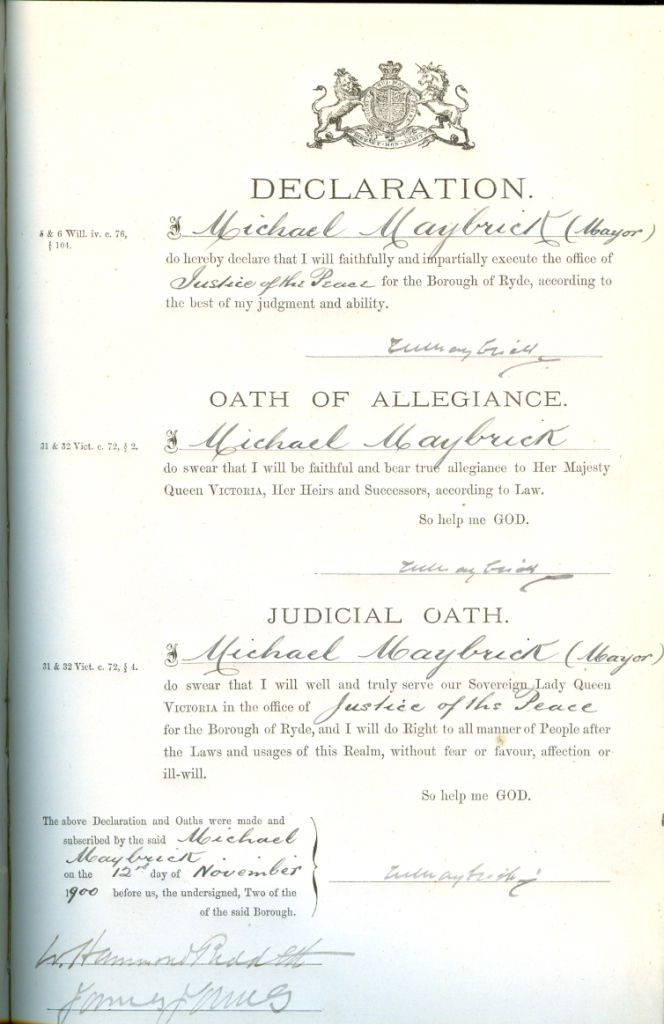 DECLARATION.
5 & 6 Will. iv. c. 76,
§ 104.
I Michael Maybrick (Mayor)
do hereby declare that I will faithfully and impartially execute the office of
Justice of the Peace for the Borough of Ryde, according to
the best of my judgment and ability.
OATH OF ALLEGIANCE.
31 & 32 Vict. c. 72, § 2.
I Michael Maybrick
do swear that I will be faithful and bear true allegiance to Her Majesty
Queen VICTORIA, Her Heirs and Successors, according to Law.
So help me GOD.
JUDICIAL OATH.
31 & 32 Vict. c. 72, § 4.
I Michael Maybrick (Mayor)
do swear that I will well and truly serve our Sovereign Lady Queen
VICTORIA in the office of Justice of the Peace
for the Borough of Ryde, and I will do Right to all manner of People after
the Laws and usages of this Realm, without fear or favour, affection or
ill-will.
So help me GOD.
The above Declaration and Oaths were made and
subscribed by the said Michael
Maybrick
on the 12th day of November
1900 before us, the undersigned, Two of the
of the said Borough.